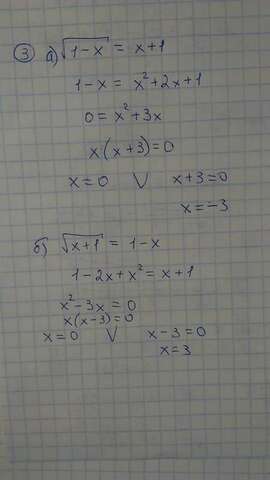 ③ а) √(1-x) = x+1
1-x = x²+2x+1
0 = x²+3x
x(x+3)=0
x=0 V x+3=0
x=-3
б) √(x+1) = 1-x
1-2x+x²=x+1
x²-3x=0
x(x-3)=0
x=0 V x-3=0
x=3